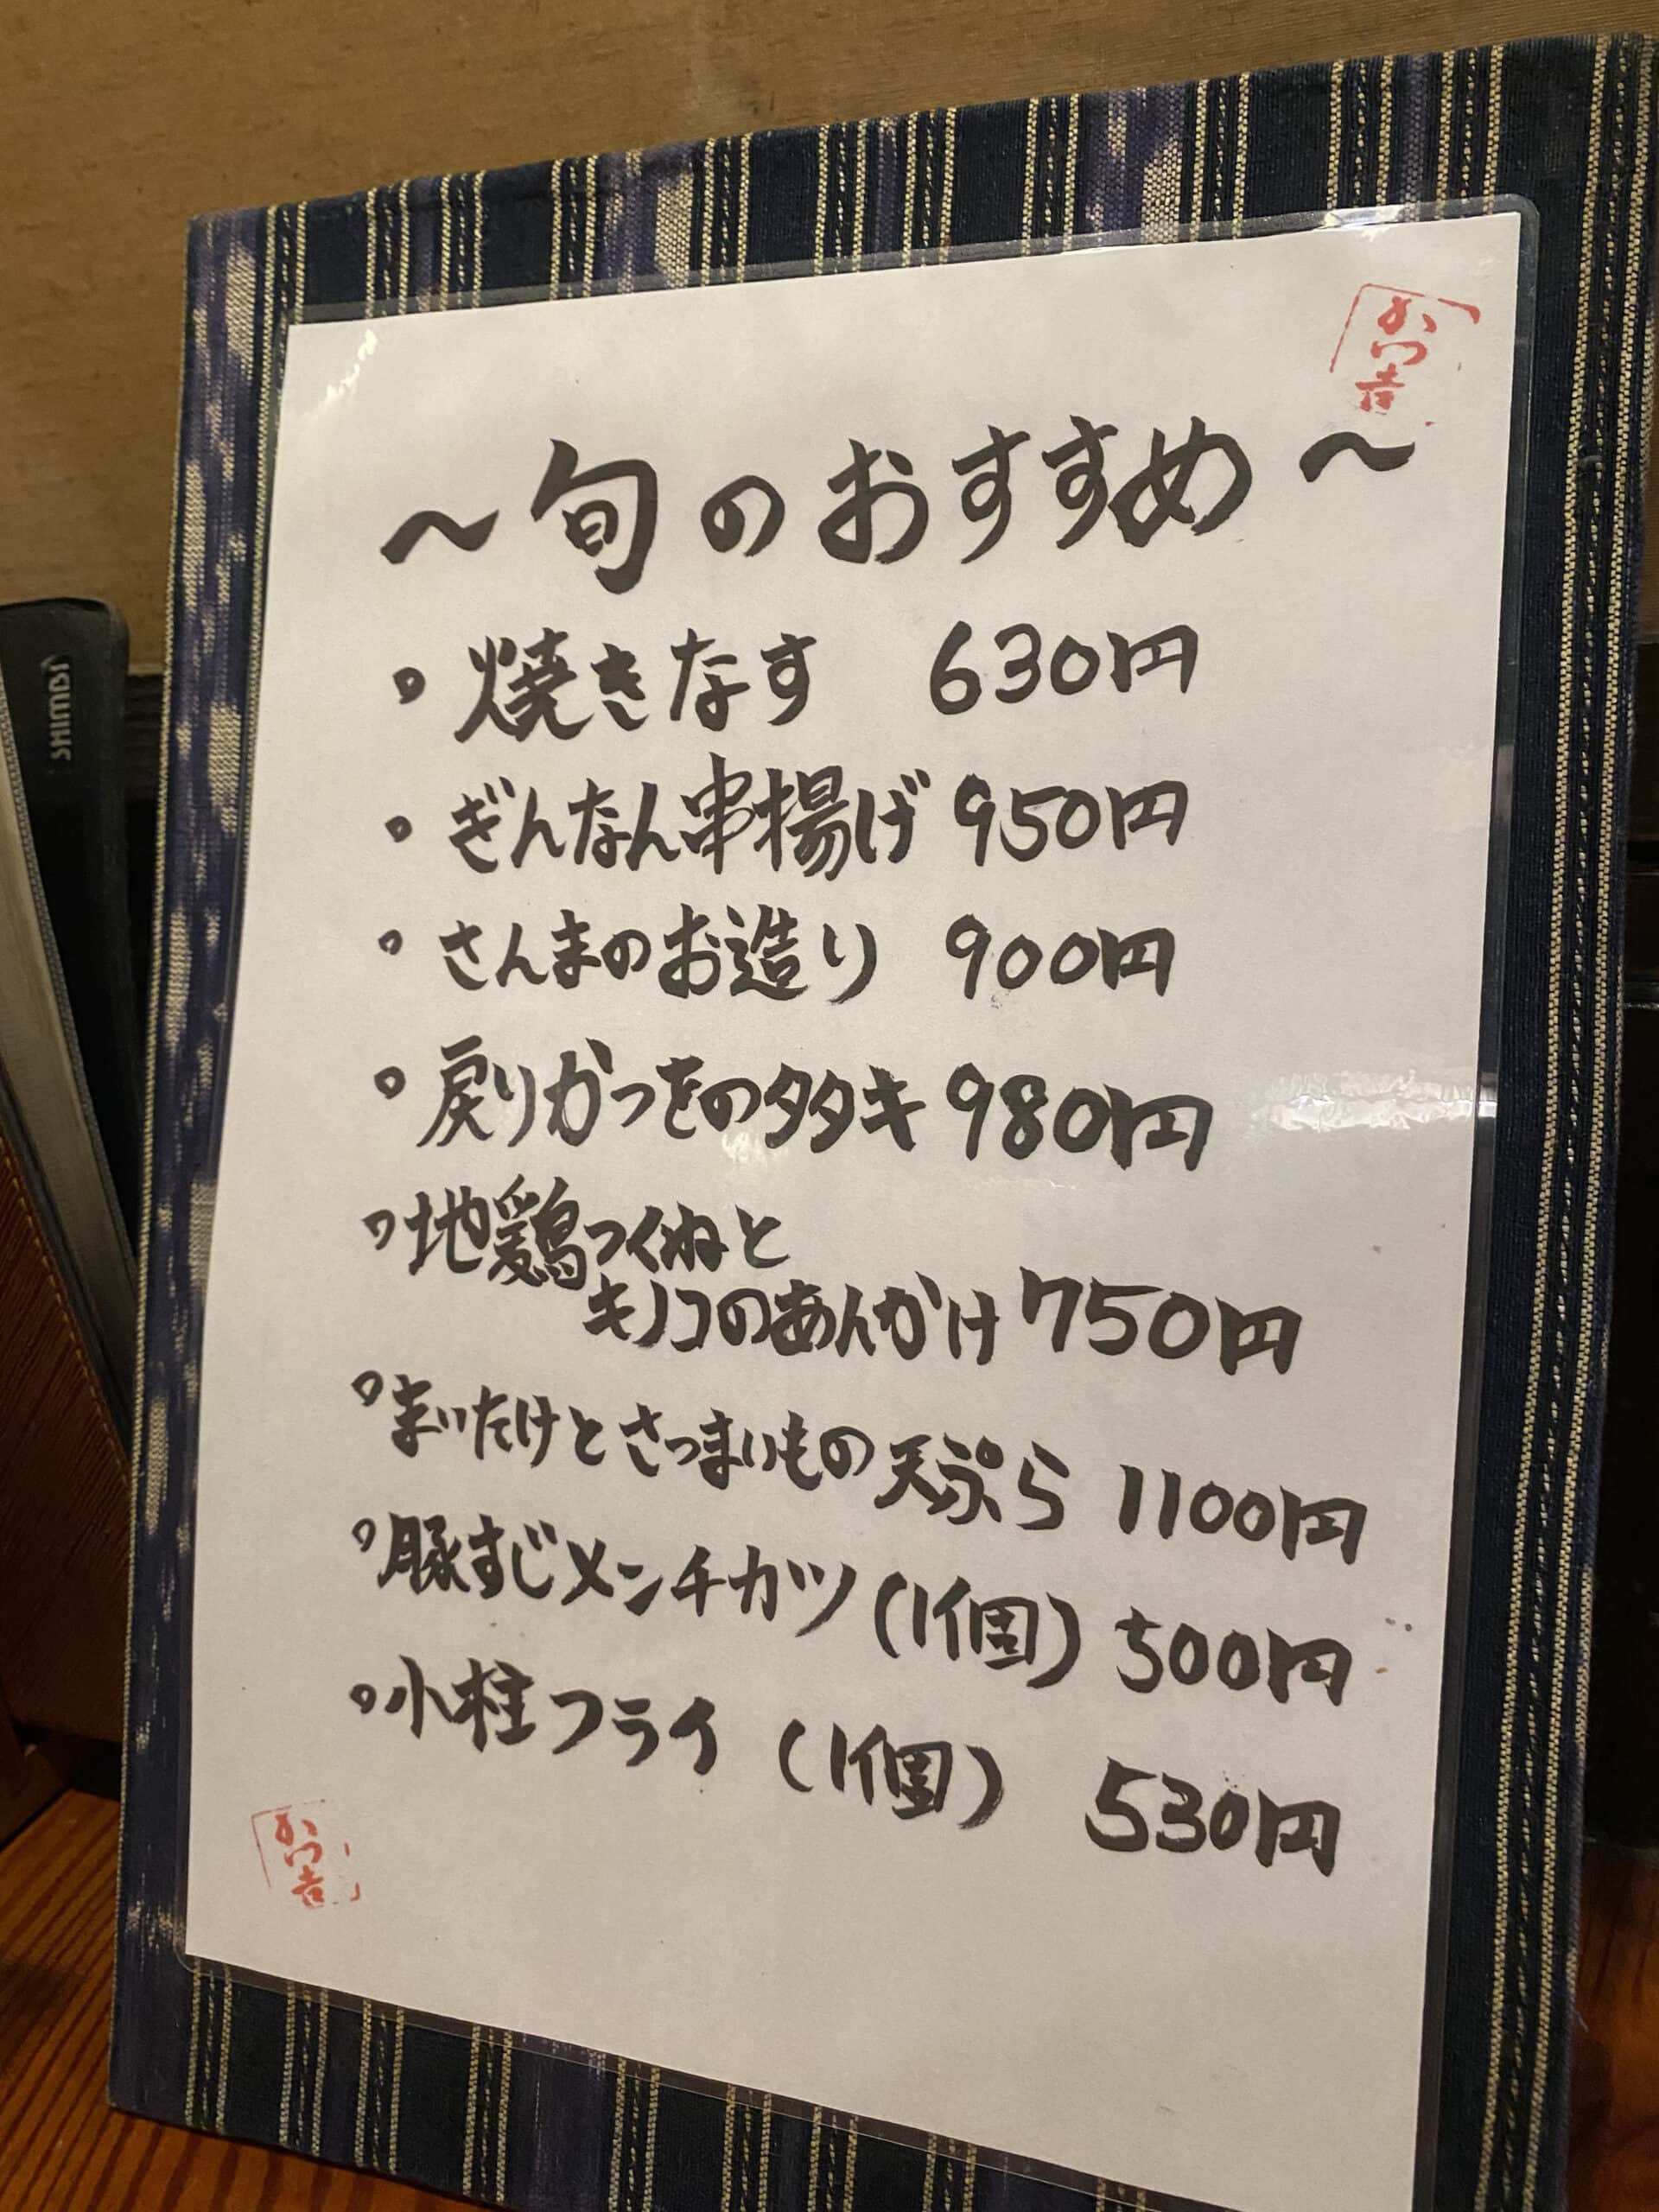 かつ吉
～旬のおすすめ～
。焼きなす 630円
。ぎんなん串揚げ 950円
。さんまのお造り 900円
。戻りかつをのタタキ 980円
。地鶏つくねと
キノコのあんかけ 750円
。まいたけとさつまいもの天ぷら 1100円
。豚すじメンチカツ(1個) 500円
。小柱フライ(1個) 530円
かつ吉
SHIMBI